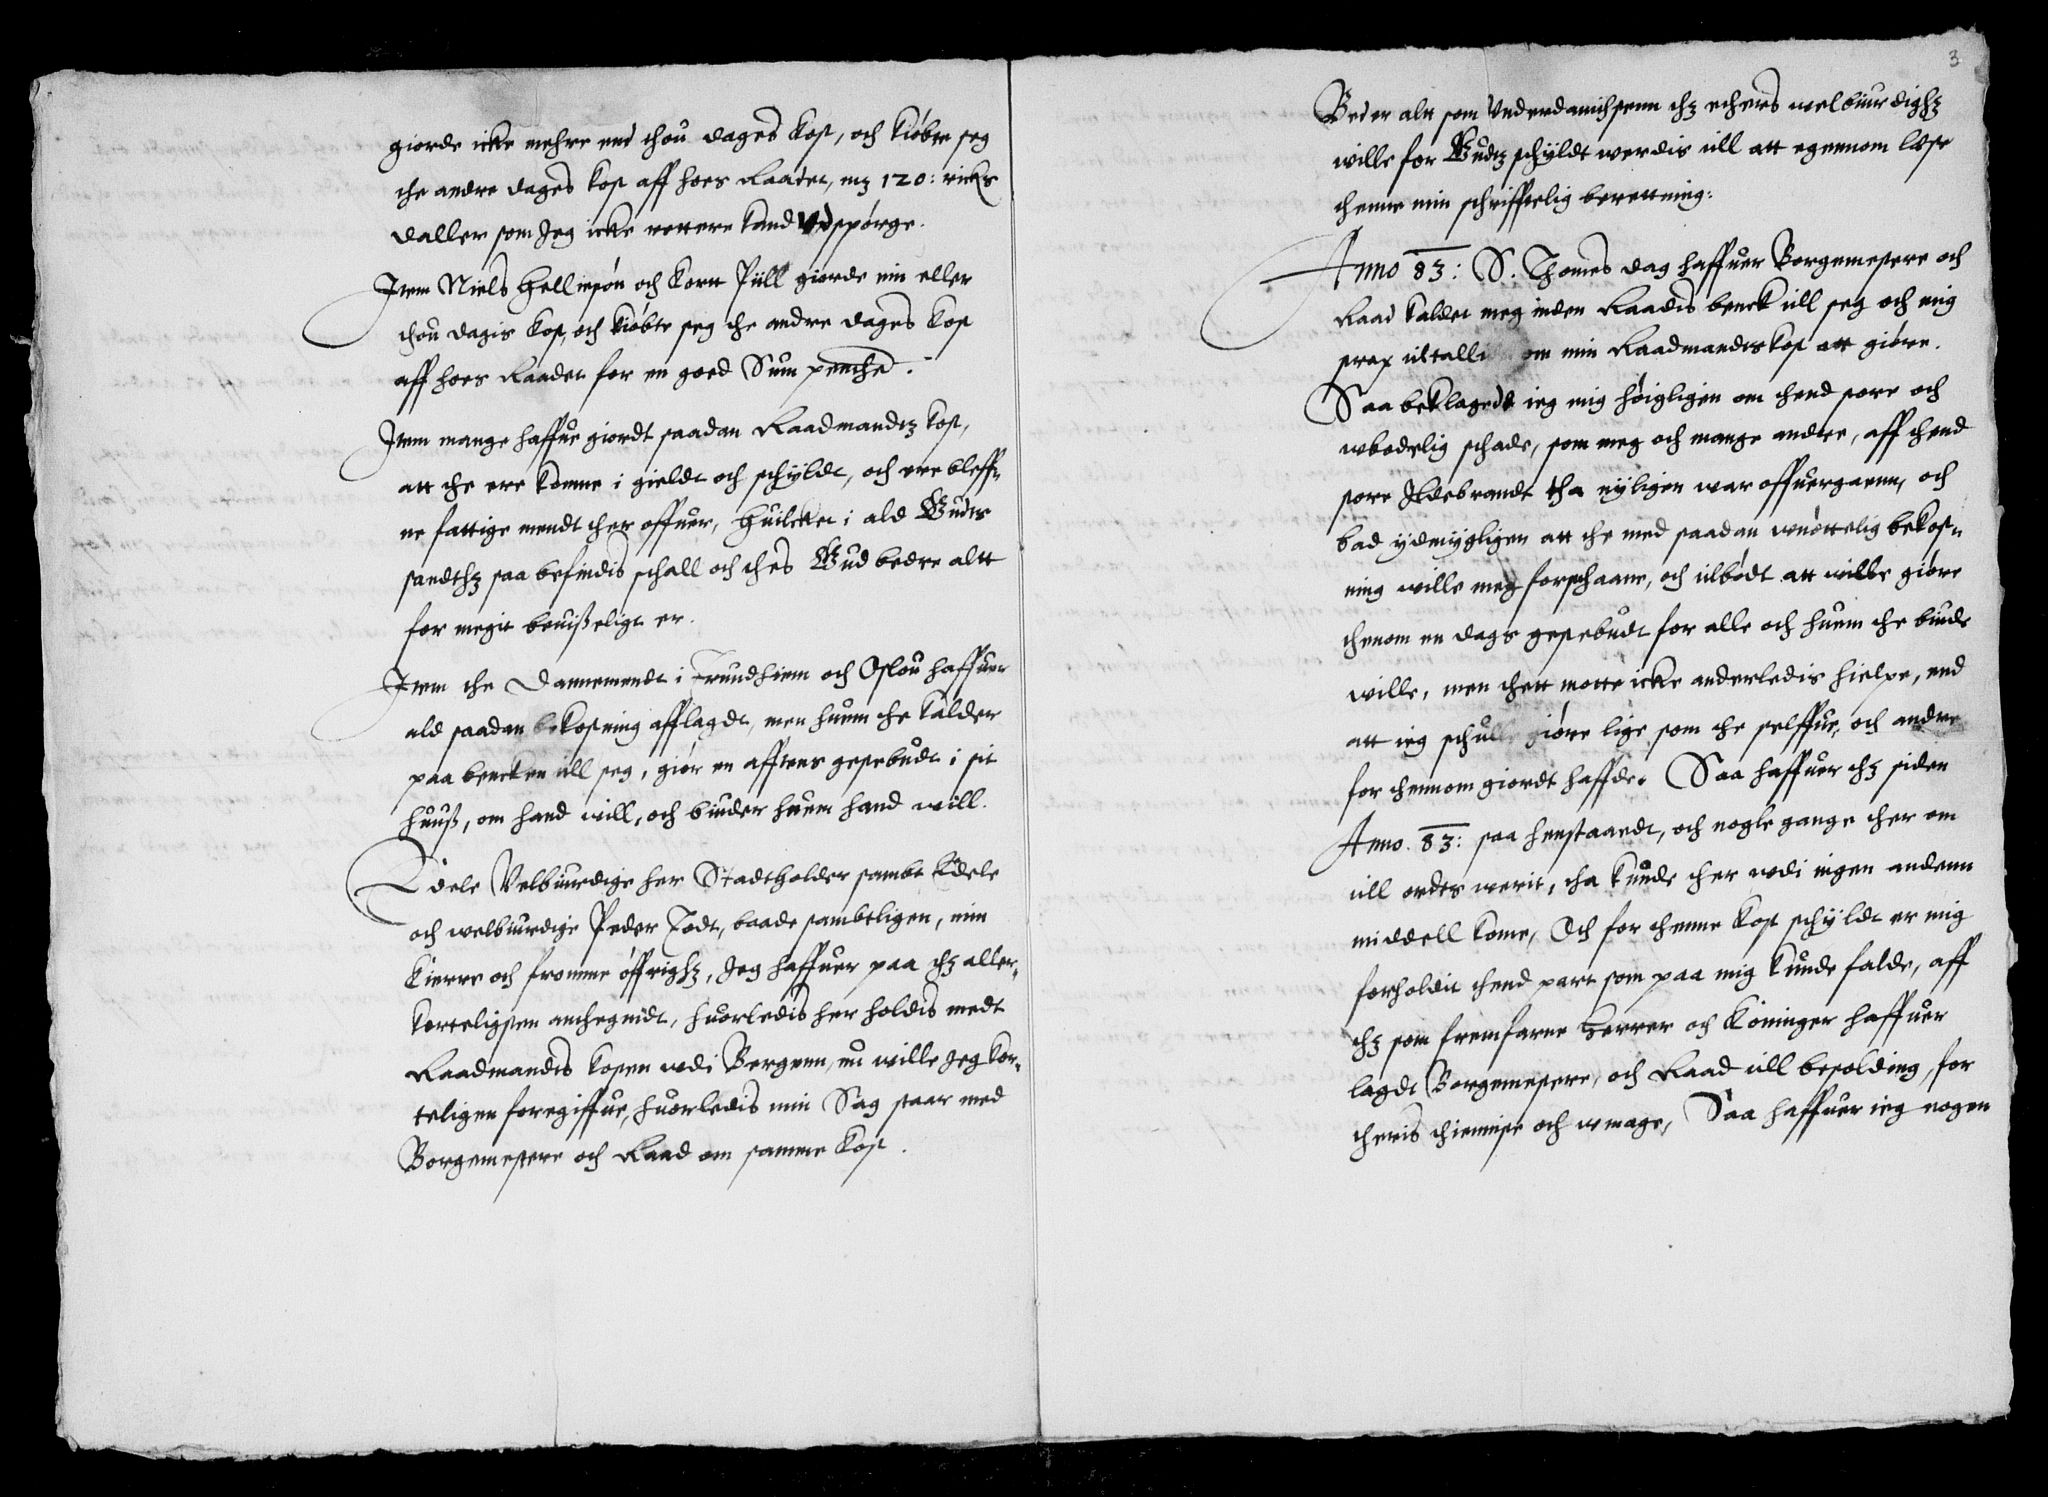 giorde icke mehre end thou dages kost, och kiøbte seg
the andre dages kost aff hoes Raadet, mz 120: ricks
daller som Jeg icke rettere kand vdspørge.
Item Niels Helliesøn och Kort Piill giorde em eller
thou dagis kost, och kiøbte seg the andre dages kost
aff hoes Raadet for en goed Sum penche.
Item mange haffue giordt saadan Raadmandtz kost,
att the ere komme i gieldt och schyldt, och ere bleff-
ne fattige mendt ther offuer, huilcket i ald Gudts
sandthz saa befindis schall och thes Gud bedre altt
for megit beuißeligt er.
Item the Dannemendt i Trundhiem och Oslou haffuer
ald saadan bekostning afflagdt, men huem the kalder
paa bencken till seg, giør en afftens gestebudt i sit
huuß, om hand will, och biuder huem hand will.
Edele Velbiurdige her Stadtholder sambt Edele
och welbiurdige Peder Todt, baade samtligen, min
kierre och fromme øffrighz, Jeg haffuer paa thz aller-
korteligsten anthegnidt, huorledis her holdis medt
Raadmandts kosten vdi Bergenn, nu wille Jeg kor-
teligen foregiffue, huorledis min Sag staar med
Borgemestere och Raad om samme kost.
3
Beder alt som Underdanichsten thz ethers welbiurdighz
wille for Gudtz schyldt werdis till att egennom lese
thenne min schrifftelig berettning:
Anno 83: S. Thomes dag haffuer Borgemestere och
Raad kaldet meg inden Raadis benck till seg och mig
strax tiltallid om min Raadmandts kost att giøre.
Saa beklagede ieg mig høigligen om thend store och
wbodelig schade, som meg och mange andre, aff thend
store Ildebrandt tha nyligen war offuergaenn, och
bad ydmygligen att the med saadan wnøttelig bekost-
ning wille meg forschaane, och tilbødt att wille giøre
thenom en dags gestebudt for alle och huem the biude
wille, men thett motte icke anderledis hielpe, end
att ieg schulle giøre lige som the selffue, och andre
for thennom giordt haffde. Saa haffuer thz siden
Anno. 83: saa henstaandt, och nogle gange ther om
till ordts werit, tha kunde ther vdi ingen andenn
middell kome, Och for thenne kost schyldt er mig
forholdit thend part som paa mig kunde falde, aff
thz som fremfarne Herrer och Köninger haffuer
lagdt Borgemestere, och Raad till besolding, for
theris thienniste och wmage, Saa haffuer ieg nogen